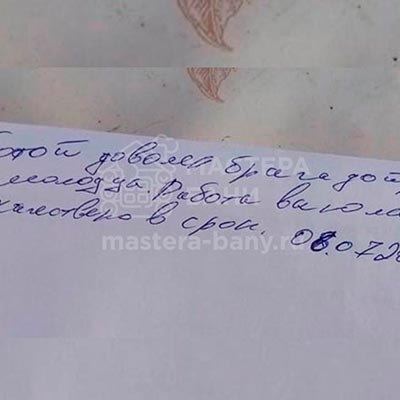 ботой доволен брагадой
молодцы Работа выпол
качествено в срок. 08.072
МАСТЕРА
БАНИ
mastera-bany.ru